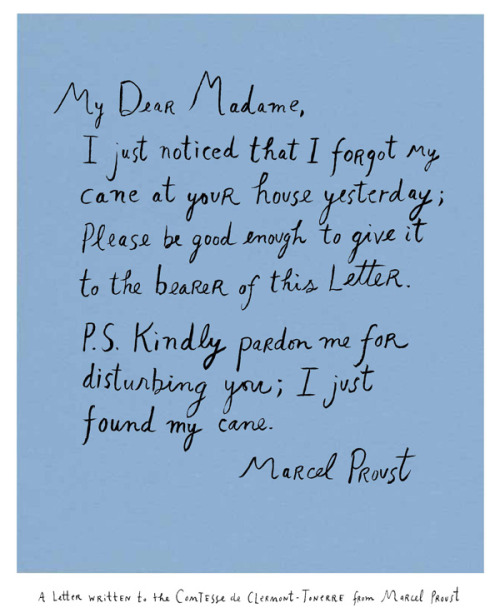 My Dear Madame,
I just noticed that I forgot my
cane at your house yesterday;
Please be good enough to give it
to the bearer of this Letter.
P.S. Kindly pardon me for
disturbing you; I just
found my cane.
Marcel Proust
A Letter written to the Comtesse de Clermont-Tonerre from Marcel Proust